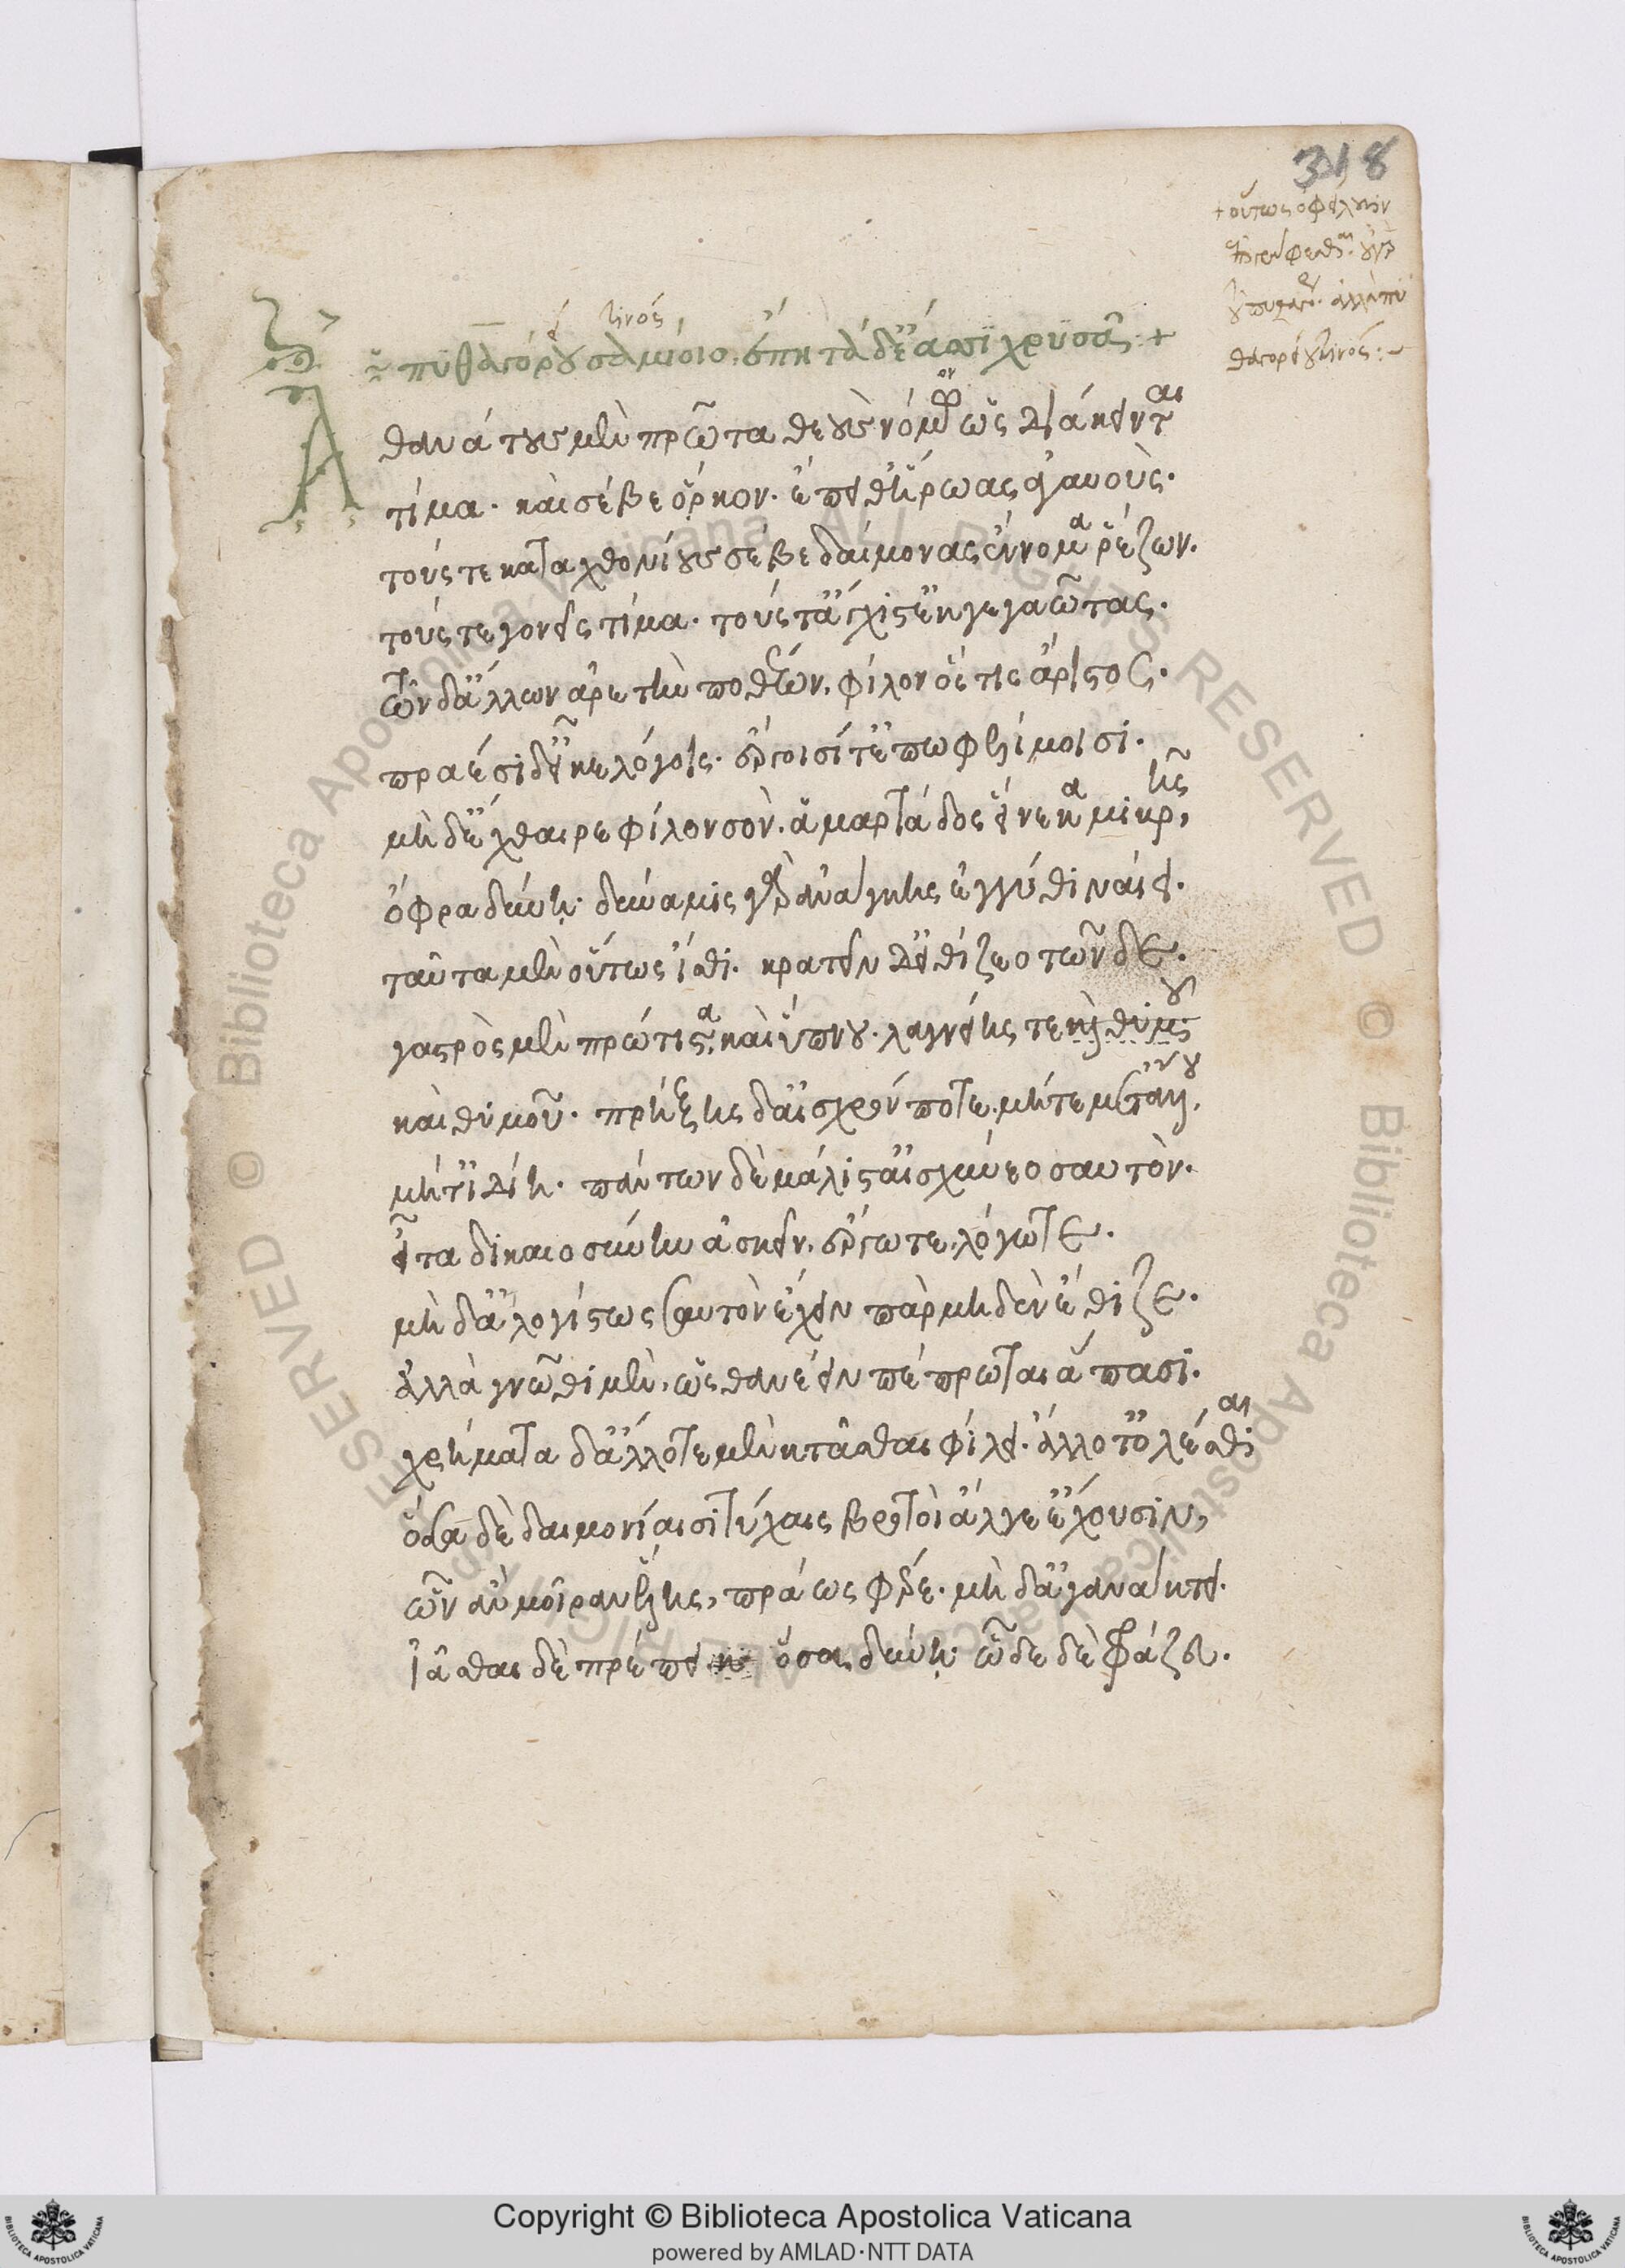 318
+ οὕτως ὀφείλει
θαγορείου τινός:-
Πυθαγόρου σαμίοιο. ἔπη τάδε ἄασι χρυσᾶ: +
Ἀθανάτους μὲν πρῶτα θεοὺς νόμον ὡς διάκειντται
τίμα. καὶ σέβε ὅρκον. ἔπειθ' ἥρωας ἀγαυούς.
τούς τε καταχθονίους σέβε δαίμονας ἔννομα ῥέζων.
τούς τε γονεῖς τίμα. τούς τ' ἄγχιστ' ἐκγεγαῶτας.
τῶν δ' ἄλλων ἀρετὴν ποθέων, φίλον ὅστις ἄριστος.
πραέσι δ' εἶκε λόγοις. ἔργοισί τ' ἐπωφελίμοισι.
μὴ δ' ἔχθαιρε φίλον σὸν. ἁμαρτάδος εἵνεκα μικρῆς,
ὄφρα δύνῃ. δύναμις γὰρ ἀνάγκης ἐγγύθι ναίει.
ταῦτα μὲν οὕτως ἴσθι. κρατεῖν δ' εἰθίζεο τῶνδε.
γαστρὸς μὲν πρώτιστα, καὶ ὕπνου. λαγνείης τε καὶ θυμοῦ
καὶ θυμοῦ. πρήξῃς δ' αἰσχρόν ποτε. μήτε μετ' ἄλλου,
μήτ' ἰδίῃ. πάντων δὲ μάλιστ' αἰσχύνεο σαυτόν.
εἶτα δικαιοσύνην ἀσκεῖν. ἔργω τε. λόγω τε.
μὴ δ' ἀλογίστως σαυτὸν ἔχειν παρὰ μηδὲν ἔθιζε.
ἀλλὰ γνῶθι μὲν, ὡς θανέειν πέπρωται ἅπασι.
χρήματα δ' ἄλλοτε μὲν κτᾶσθαι φίλει. ἄλλοτ' ὀλέσθαι
ὅσα δὲ δαιμονίαισι τύχαις βροτοὶ ἄλγε' ἔχουσιν,
ὧν ἂν μοῖραν ἔχῃς, πράως φέρε. μὴ δ' ἀγανάκτει.
ἰᾶσθαι δὲ πρέπει ὅσον δύνῃ. ὧδε δὲ φράζευ.
Copyright © Biblioteca Apostolica Vaticana
powered by AMLAD·NTT DATA